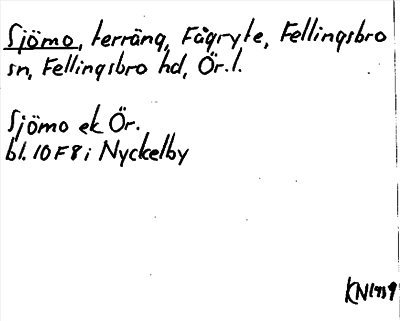 Sjömo, terräng, Fågryte, Fellingsbro
sn, Fellingsbro hd, Ör. l.
Sjömo ek Ör.
bl. 10F8i Nyckelby
KN1939